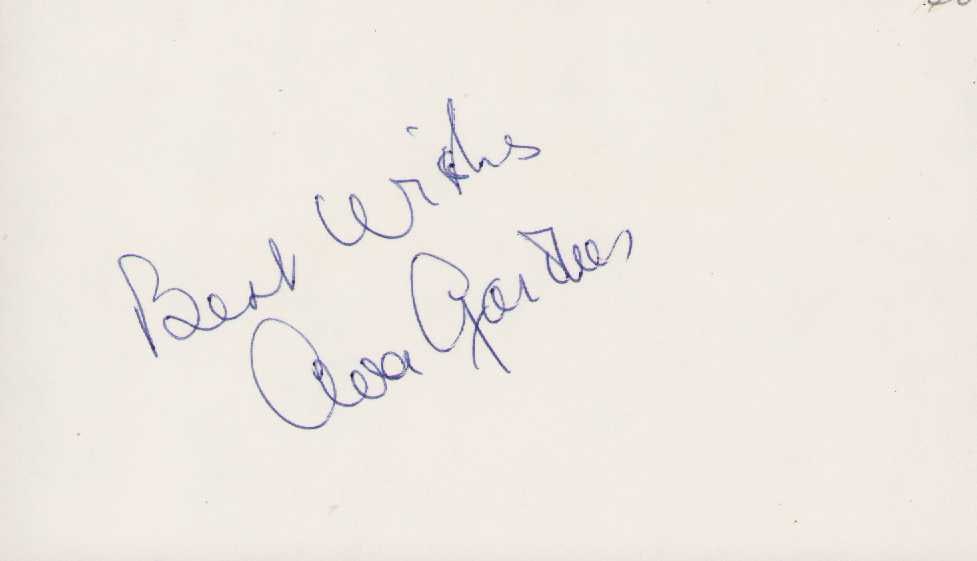 Best Wishes
Ava Gardner